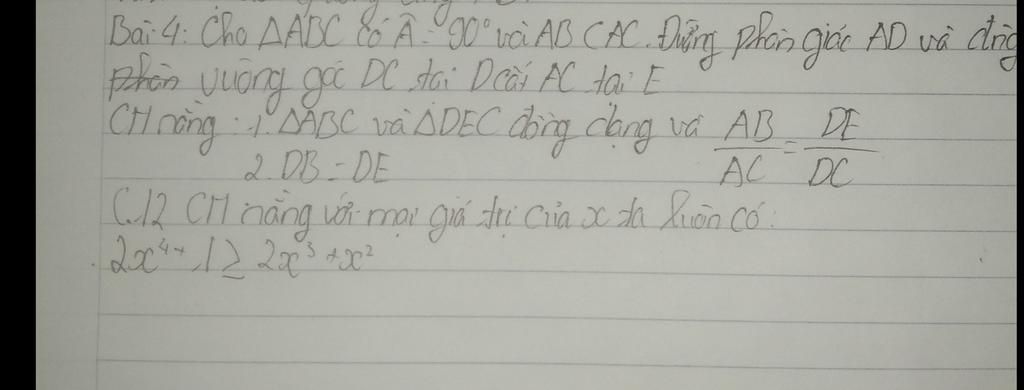 Bài 4: Cho ΔABC có Â = 90° và AB < AC. Đường phân giác AD và đường
phân vuông góc DC tại D cắt AC tại E
CM rằng : 1. ΔABC và ΔDEC đồng dạng và AB/AC = DE/DC
2. DB = DE
C12 CM rằng với mọi giá trị của x ta luôn có:
2x⁴ + 1 ≥ 2x³ + x²